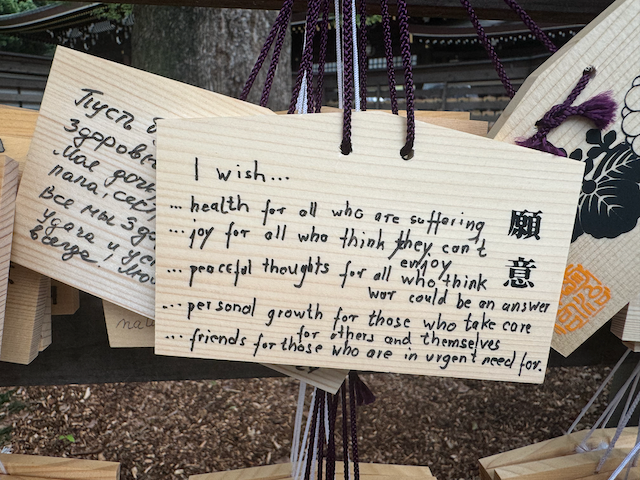 I wish...
... health for all who are suffering
... joy for all who think they can't
enjoy
... peaceful thoughts for all who think
war could be an answer
... personal growth for those who take care
for others and themselves
... friends for those who are in urgent need for.
願
意
Пусть
здоровь
мое
папа,
все мы
удача и
всегда.